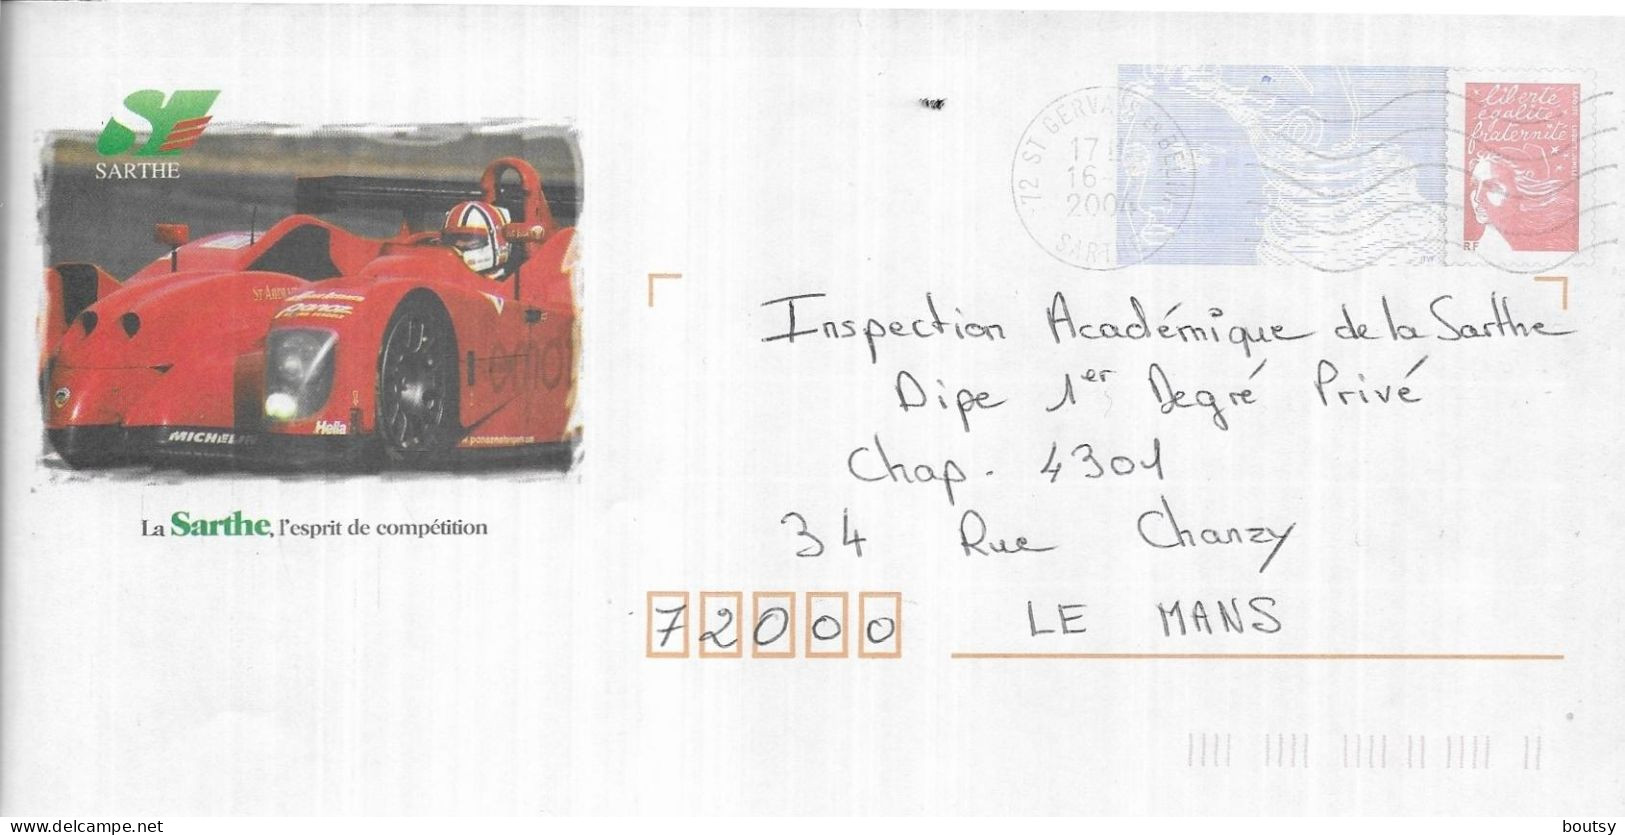 SARTHE
St ANDRÉ
Hella
MICHELIN
La Sarthe, l'esprit de compétition
72 ST GERVAIS EN BELIN
17
16-
200
SARTHE
liberté
égalité
fraternité
RF
Inspection Académique de la Sarthe
Dipe 1er Degré Privé
Chap. 4301
34 Rue Chanzy
72000 LE MANS
boutsy